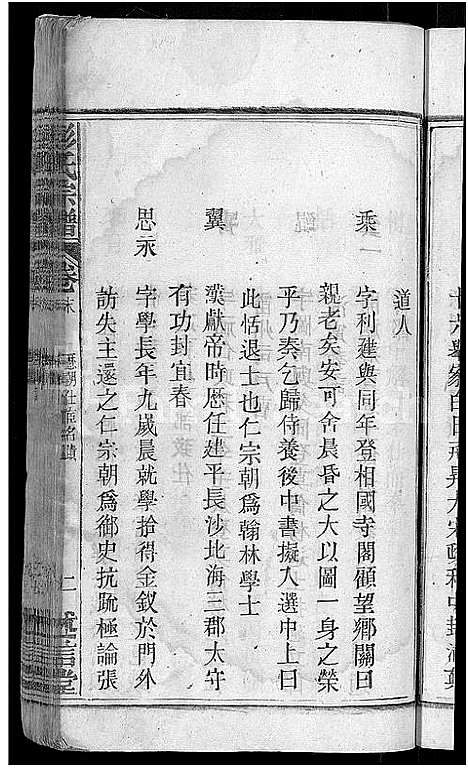 道人
乘 字利建與同年登相國寺閣顧望鄉關曰
親老矣安可舍晨昏之大以圖一身之榮
乎乃奏乞歸侍養後中書擬入選中上曰
此恬退士也仁宗朝爲翰林學士
翼 漢獻帝時歷任建平長沙北海三郡太守
有功封宜春
思永 字學長年九歲晨就學拾得金釵於門外
訪失主還之仁宗朝爲御史抗疏極論張
彭氏宗譜 卷末 歷朝仕宦名蹟 二 述信堂